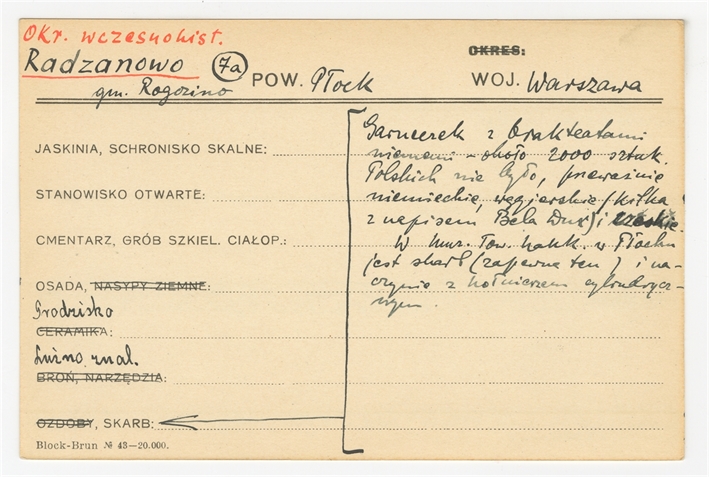 Okr. wczesnohist.
Radzanowo 7a
gm. Rogozino
OKRES:
POW. Płock
WOJ. Warszawa
JASKINIA, SCHRONISKO SKALNE:
STANOWISKO OTWARTE:
CMENTARZ, GRÓB SZKIEL. CIAŁOP.:
OSADA, NASYPY ZIEMNE:
Grodzisko
CERAMIKA:
Luźno znal.
BROŃ, NARZĘDZIA:
OZDOBY, SKARB:
Block-Brun № 43—20.000.
Garnczek z brakteatami
niememi – około 2000 sztuk.
Polskich nie było, przeważnie
niemieckie, węgierskie (kilka
z napisem Bela Dux) i czeskie.
W Muz. Tow. Nauk. w Płocku
jest skarb (zapewne ten) i na-
czynie z kołnierzem cylindrycz-
nym.